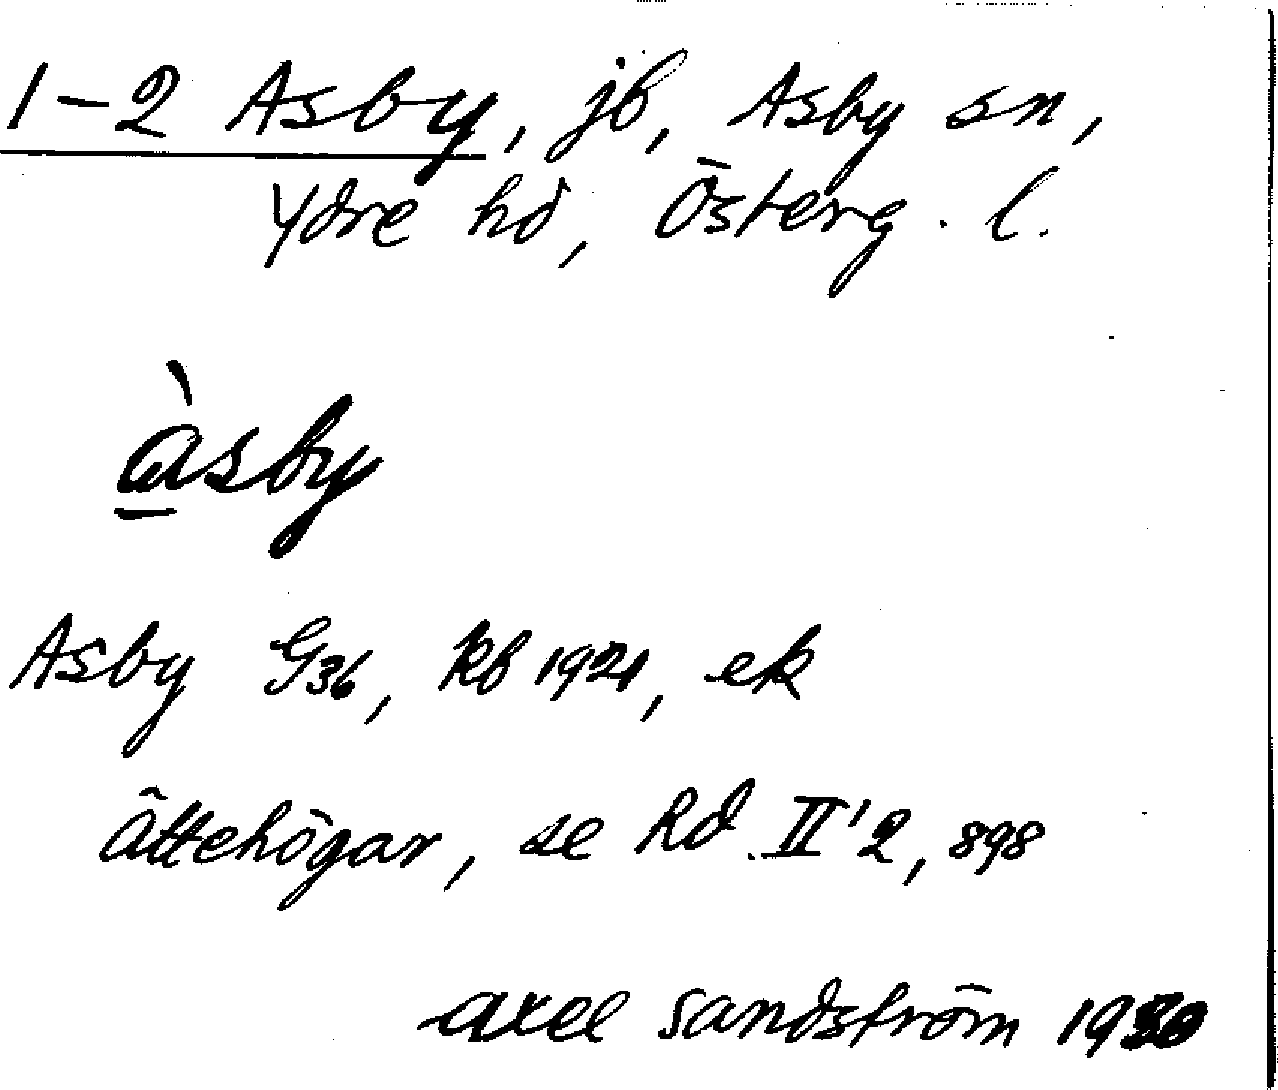 1-2 Asby, jb, Asby sn,
Ydre hd, Österg. l.
àsby
Asby G36, kb 1921, ek
ättehögar, se Rd II'2, 898
axel sandström 1930